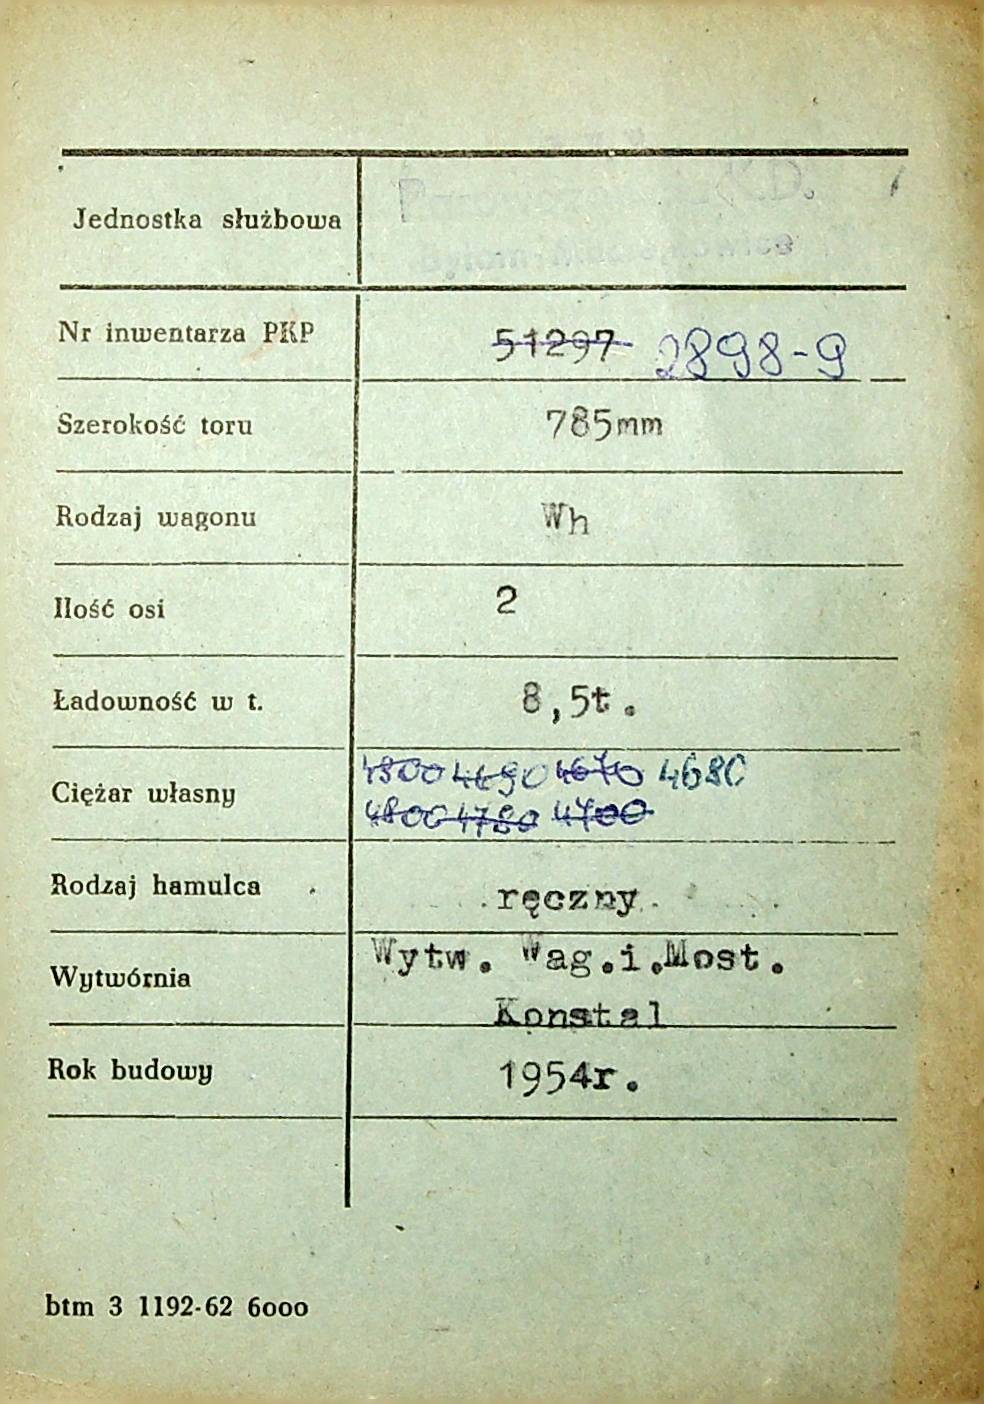 Jednostka służbowa
Nr inwentarza PKP 51297 2898-9
Szerokość toru 785mm
Rodzaj wagonu Wh
Ilość osi 2
Ładowność w t. 8,5t.
4690 4670 4680
Ciężar własny
4800 4780 4700
Rodzaj hamulca ręczny
Wytw. Wag.i.Most.
Wytwórnia
Konstal
Rok budowy 1954r.
btm 3 1192-62 6000